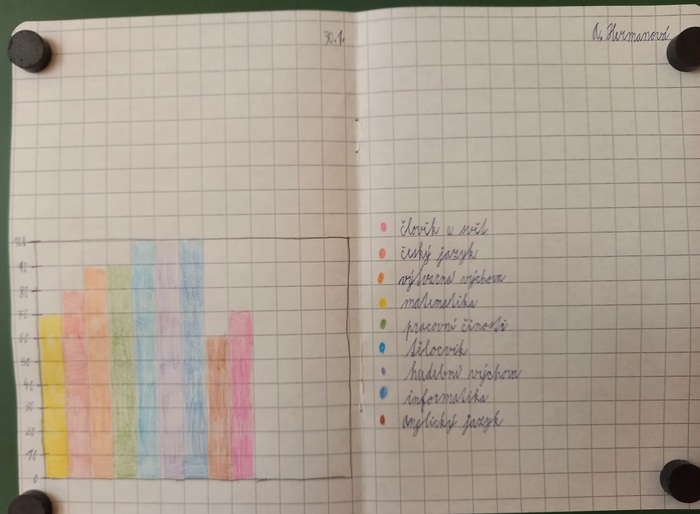 30.1.
A. Hermanová
100
90
80
70
60
50
40
30
20
10
0
člověk a svět
český jazyk
výtvarná výchova
matematika
pracovní činosti
tělocvik
hudební výchova
informatika
anglický jazyk